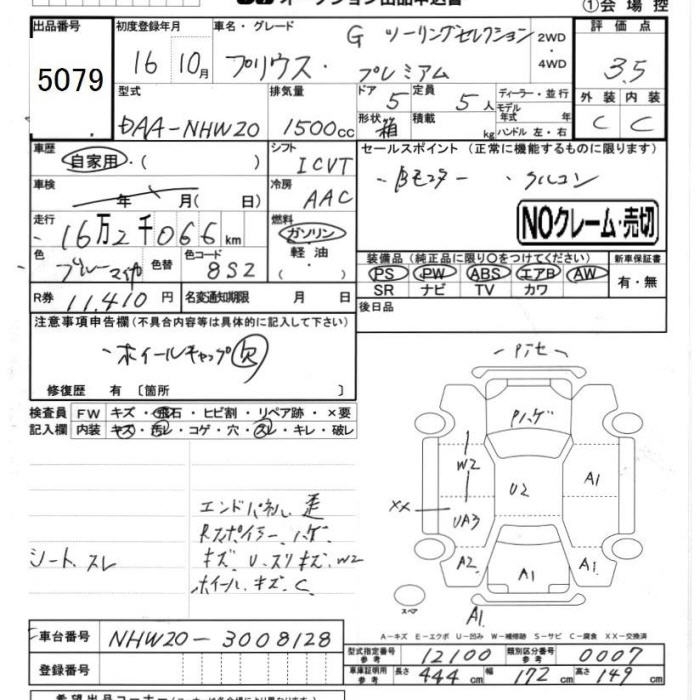 ①会場控
出品番号 初度登録年月 車名・グレード G ツーリングセレクション 2WD・4WD 評価点
5079 16 10月 プリウス・プレミアム 3.5
型式 排気量 ドア 5 定員 5人 ディーラー・並行
モデル年式 年 外装 内装
DAA-NHW20 1500cc 形状 箱 積載 kg ハンドル 左・右 C C
車歴 自家用・( ) シフト ICVT セールスポイント (正常に機能するものに限ります)
車検 年 月( 日) 冷房 AAC
Bモニター クルコン
NOクレーム・売切
走行 16万2千066km 燃料 ガソリン 軽油
色 色替 色コード 8S2
装備品 (純正品に限り○をつけてください) 新車保証書
PS PW ABS エアB AW 有・無
SR ナビ TV カワ
R券 11,410円 名変通知期限 月 日 後日品
注意事項申告欄(不具合内容等は具体的に記入して下さい)
ホイールキャップ欠
修復歴 有 〔箇所 〕
検査員 FW キズ・飛石・ヒビ割・リペア跡・×要
記入欄 内装 キズ・汚レ・コゲ・穴・スレ・キレ・破レ
エンドパネル 歪
Rスポイラー ハゲ
シート スレ キズ U スリキズ W2
ホイール キズ C
Pハゲ
W2 U2 A1
XX UA3
A2 A1 A1
スペア A1
A-キズ E-エクボ U-凹み W-補修跡 S-サビ C-腐食 XX-交換済
車台番号 NHW20-3008128
型式指定番号 参考 12100 類別区分番号 参考 0007
登録番号
車庫証明用 参考 長さ 444cm 幅 172cm 高さ 149cm